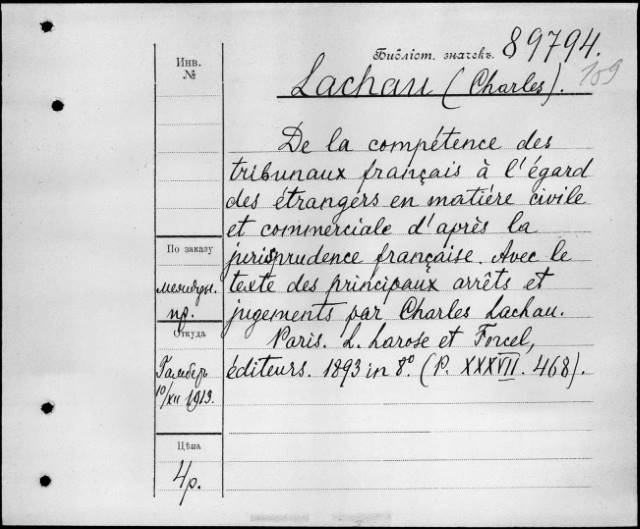 Инв.
№
Библіот. значекъ 89794.
109
Lachau (Charles).
De la compétence des
tribunaux français à l'égard
des étrangers en matiére civile
et commerciale d'après la
jurisprudence française. Avec le
texte des principaux arrêts et
jugements par Charles Lachau.
Paris. L. Larose et Forcel,
éditeurs. 1893 in 8º. (P. XXXVII. 468).
По заказу
междун.
пр.
Откуда
Гамберъ
10/XII 1913.
Цѣна
4р.